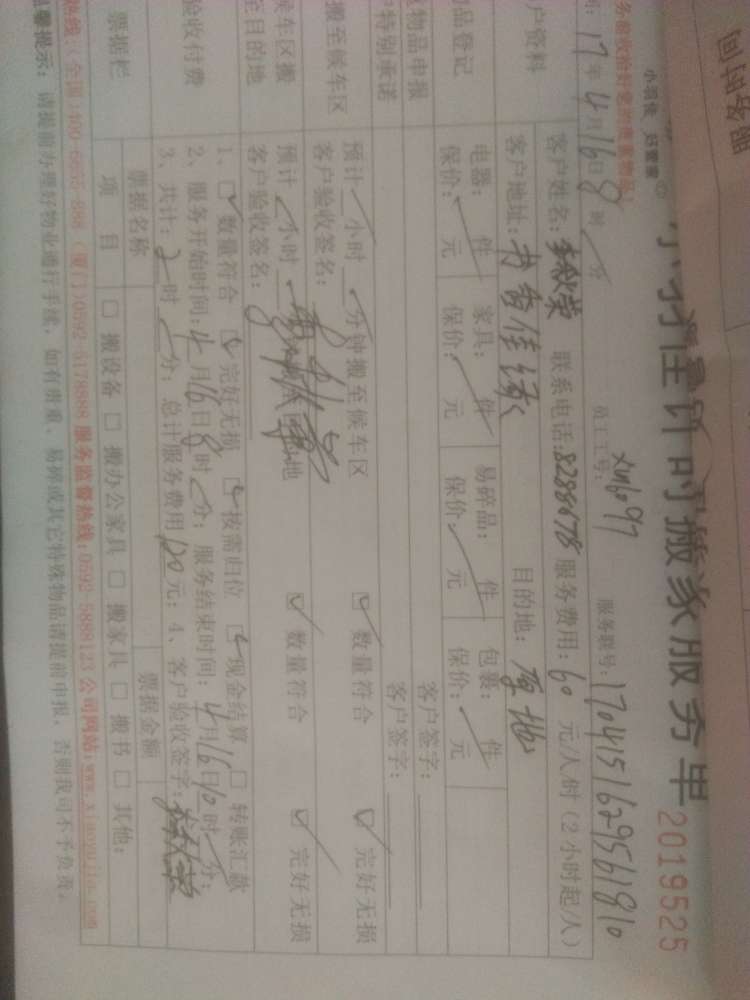 部时间
小羽佳 好管家
小羽佳计时搬家服务单
2019525
务验收给好您的贵重物品）
17年4月16日8时 分
员工工号: xm6097
服务联号: 1704151629561810
户资料
客户姓名: 联系电话:8288678 服务费用: 60 元/人/时 (2小时起/人)
客户地址: 书香佳缘 目的地: 原地
品登记
电器: 件 家具: 件 易碎品: 件 包裹: 件
保价: 元 保价: 元 保价: 元 保价: 元
物品申报 客户签字:
特别承诺 客户签字:
搬至候车区
预计 小时 分钟搬至候车区 ☑ 数量符合 ☑ 完好无损
客户验收签名:
候车区搬
至目的地
预计 小时 地 ☑ 数量符合 ☑ 完好无损
客户验收签名:
验收付费
1、☑ 数量符合 ☑ 完好无损 ☑ 按需归位 ☑ 现金结算 □ 转账汇款
2、服务开始时间: 4月16日8时 分; 服务结束时间: 4月16日10时 分;
3、共计: 2时 分; 总计服务费用120元; 4、客户验收签字:
票据栏
票据名称 票据金额
项 目 □ 搬设备 □ 搬办公家具 □ 搬家具 □ 搬书 □ 其他:
热线:(全国)400-6655-888 (厦门)0592-5178888 服务监督热线:0592-5889123 公司网站:www.xiaoyujia.com
温馨提示: 请提前办理好物业通行手续, 如有贵重、易碎或其它特殊物品请提前申报, 否则我司不予负责。